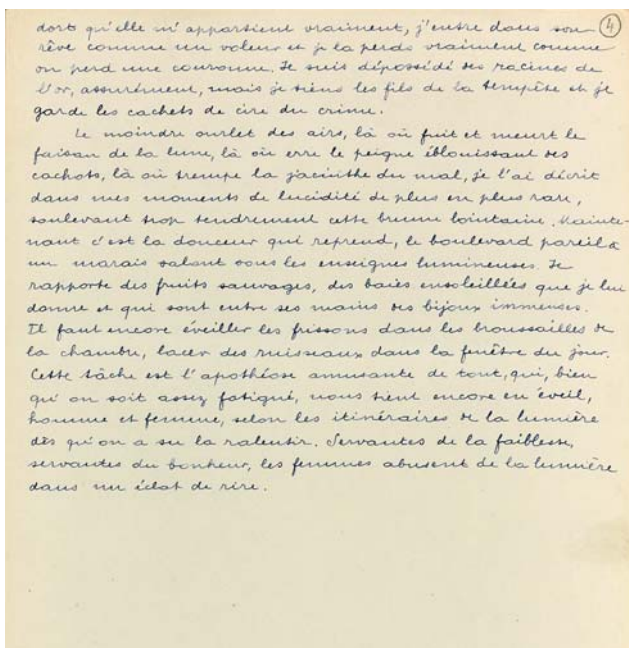 dort qu'elle m'appartient vraiment, j'entre dans son ④
rêve comme un voleur et je la perds vraiment comme
on perd une couronne. Je suis dépossédé des racines de
l'or, assurément, mais je tiens les fils de la tempête et je
garde les cachets de cire du crime.
Le moindre ourlet des airs, là où fuit et meurt le
faisan de la lune, là où erre le peigne éblouissant des
cachots, là où trempe la jacinthe du mal, je l'ai décrit
dans mes moments de lucidité de plus en plus rare,
soulevant trop tendrement cette brume lointaine. Mainte-
nant c'est la douceur qui reprend, le boulevard pareil à
un marais salant sous les enseignes lumineuses. Je
rapporte des fruits sauvages, des baies ensoleillées que je lui
donne et qui sont entre ses mains des bijoux immenses.
Il faut encore éveiller les frissons dans les broussailles de
la chambre, lacer des ruisseaux dans la fenêtre du jour.
Cette tâche est l'apothéose amusante de tout, qui, bien
qu'on soit assez fatigué, nous tient encore en éveil,
homme et femme, selon les itinéraires de la lumière
dès qu'on a su la ralentir. Servantes de la faiblesse,
servantes du bonheur, les femmes abusent de la lumière
dans un éclat de rire.